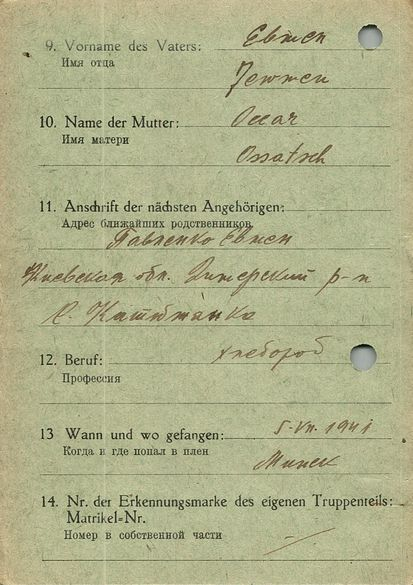 9. Vorname des Vaters: Евмен
Имя отца
Jewmen
10. Name der Mutter:
Имя матери
Ossatsch
11. Anschrift der nächsten Angehörigen:
Адрес ближайших родственников
Павленко Евмен
Киевская обл. Димерский р-н
с.
12. Beruf: хлебороб
Профессия
13 Wann und wo gefangen: 5.VII.1941
Когда и где попал в плен
Минск
14. Nr. der Erkennungsmarke des eigenen Truppenteils:
Matrikel-Nr.
Номер в собственной части
—